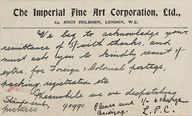 The Imperial Fine Art Corporation, Ltd.,
64, HIGH HOLBORN, LONDON, W.C.
We beg to acknowledge your
remittance of 5/- with thanks, and
must ask you to kindly remit 1/-
extra, for Foreign & Colonial postage,
packing, registered etc.
Meanwhile we are dispatching
pictures